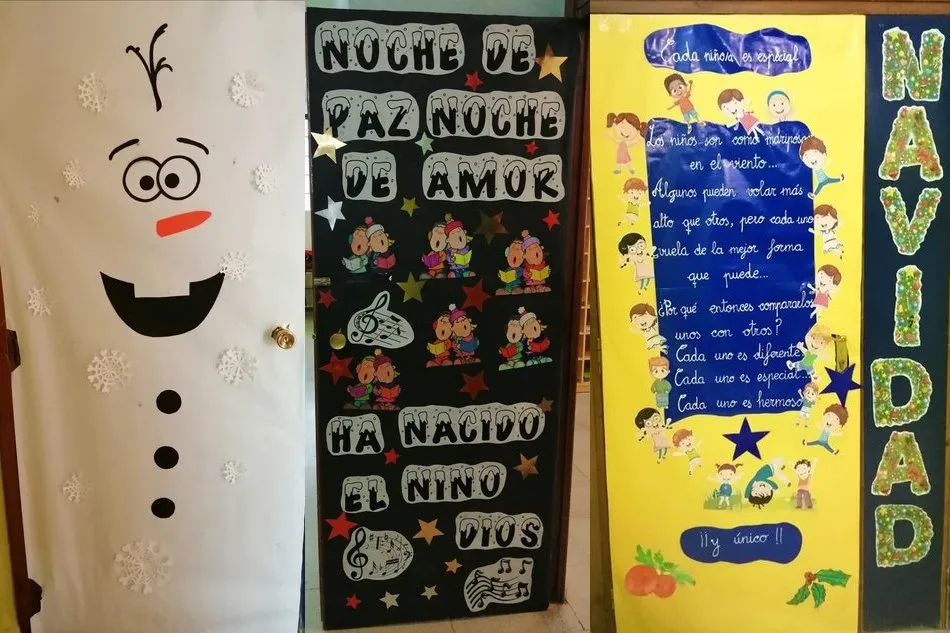 NOCHE DE
PAZ NOCHE
DE AMOR
HA NACIDO
EL NINO
DIOS
Cada niño/a es especial
Los niños son como mariposas
en el viento...
Algunos pueden volar más
alto que otros, pero cada uno
vuela de la mejor forma
que puede...
¿Por qué entonces compararlos
unos con otros?
Cada uno es diferente
Cada uno es especial...
Cada uno es hermoso
¡¡y único!!
NAVIDAD